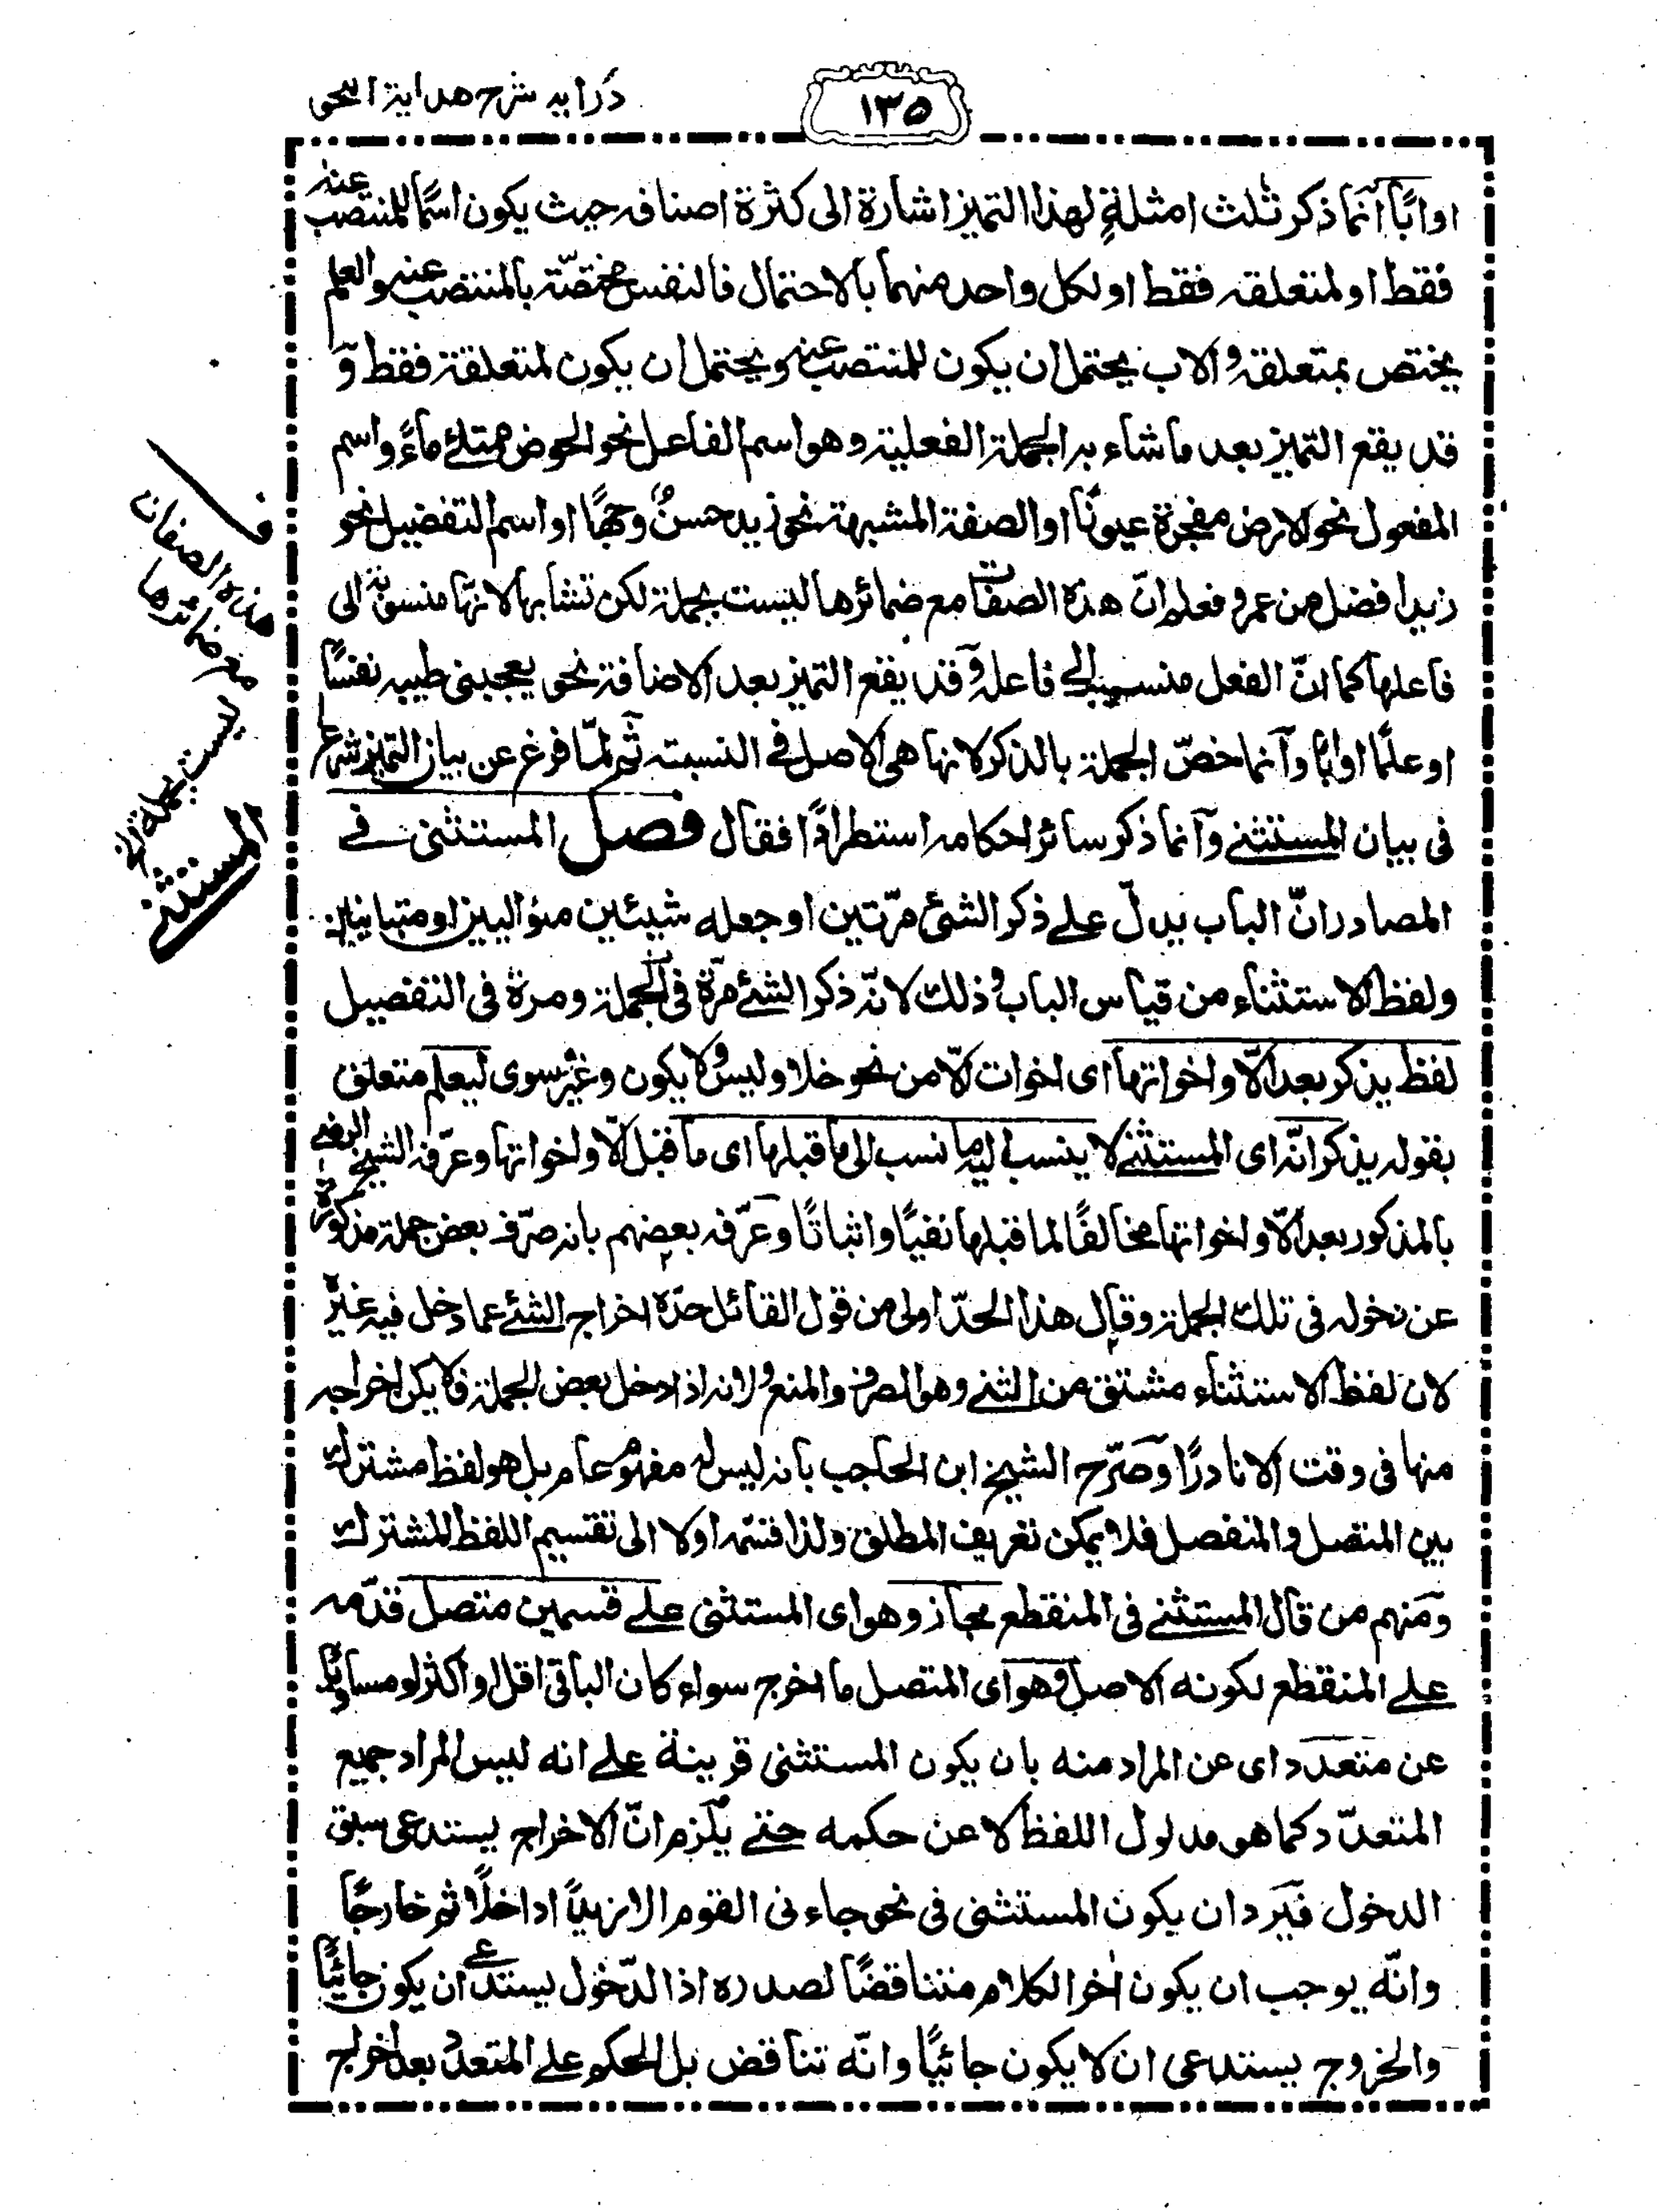 درایہ شرح ھدایۃ النحو
١٣٥
او ابًا انّما ذکر ثلٰث امثلۃٍ لھذا التمیز اشارۃ الی کثرۃ اصنافہ حیث یکون اسمًا للمنتصب عنہ
فقط او لمتعلقہ فقط او لکل واحد منھما بالاحتمال فالنفس مختصّۃ بالمنتصب عنہ والعلم
یختص بمتعلقہ والاب یحتمل ان یکون للمنتصب عنہ ویحتمل ان یکون لمتعلقۃ فقط وَ
قد یقع التمیز بعد ما شاء بہ الجملۃ الفعلیۃ وھو اسم الفاعل نحو الحوض ممتلئ ماءً واسم
المفعول نحو الارض مفجرۃ عیونًا او الصفۃ المشبھۃ نحو زید حسنٌ وجھًا او اسم التفضیل نحو
زید افضل من عمرو فعلم انّ ھذہ الصفات مع ضمائرھا لیست بجملۃ لکن تشابھا لانّھا منسوبۃ الی
فاعلھا کما انّ الفعل منسوب الی فاعلہ وَقد یقع التمیز بعد الاضافۃ نحو یعجبنی طیبہ نفسًا
او علمًا او ابًا وآنما خصّ الجملۃ بالذکر لانھا ھی الاصل فی النسبتہ ثم لمّا فرغ عن بیان التمیز شرع
فی بیان المستثنے وآنما ذکر سائر احکامہ استطرادًا فقال فصل المستثنی فے
المصادر انّ الباب یدلّ علے ذکر الشئ مرّتین او جعلہ شیئین متوالیین او متباینین
ولفظ الاستثناء من قیاس الباب وذلک لانّہ ذکر الشئے مرّۃ فی الجملۃ ومرۃ فی التفصیل
لفظ یذکر بعد الّا واخواتھا ای اخوات الّا من نحو خلا ولیس ولا یکون وغیر سوی لیعلم متعلق
بقولہ یذکر انّہ ای المستثنے لا ینسب الیہ ما نسب الی ما قبلھا ای ما قبل الّا واخواتھا وعرّفہ الشیخ الرضے
بالمذکور بعد الّا واخواتھا مخالفًا لما قبلھا نفیًا واثباتًا وعرّفہ بعضھم بانہ صرّف بعض جملۃ مذکورۃ
عن دخولہ فی تلک الجملۃ وقال ھذا الحدّ اولی من قول القائل حدّہ اخراج الشئے عما دخل فیہ غیرہ
لان لفظ الاستثناء مشتق من الثنے وھو الصرف والمنع ولانہ اذا دخل بعض الجملۃ فلا یکن اخراجہ
منھا فی وقت الا نادرًا وصرّح الشیخ ابن الحاجب بانہ لیس لہ مفھوم عام بل ھو لفظ مشترک
بین المتصل والمنفصل فلا یمکن تعریف المطلق ولذا قسّمہ اولا الی تقسیم اللفظ المشترک
ومنھم من قال المستثنے فی المنقطع مجاز وھو ای المستثنی علے قسمین متصل قدّمہ
علے المنقطع لکونہ الاصل وھو ای المتصل ما اخرج سواء کان الباقی اقل او اکثر او مساویًا
عن متعدد ای عن المراد منہ بان یکون المستثنی قرینۃ علے انہ لیس المراد جمیع
المتعدّد کما ھو مدلول اللفظ لا عن حکمہ حتے یلزم انّ الاخراج یستدعی سبق
الدخول فیرد ان یکون المستثنی فی نحو جاءنی القوم الا زیدًا داخلًا ثم خارجًا
وانّہ یوجب ان یکون اٰخر الکلام متناقضًا لصدرہ اذ الدّخول یستدعے ان یکون جائیًا
والخروج یستدعی ان لا یکون جائیًا وانّہ تناقض بل الحکم علے المتعدد بعد اخراج
ھذہ الصفات
مع ضمائرھا
لیست بجملۃ
المستثنے